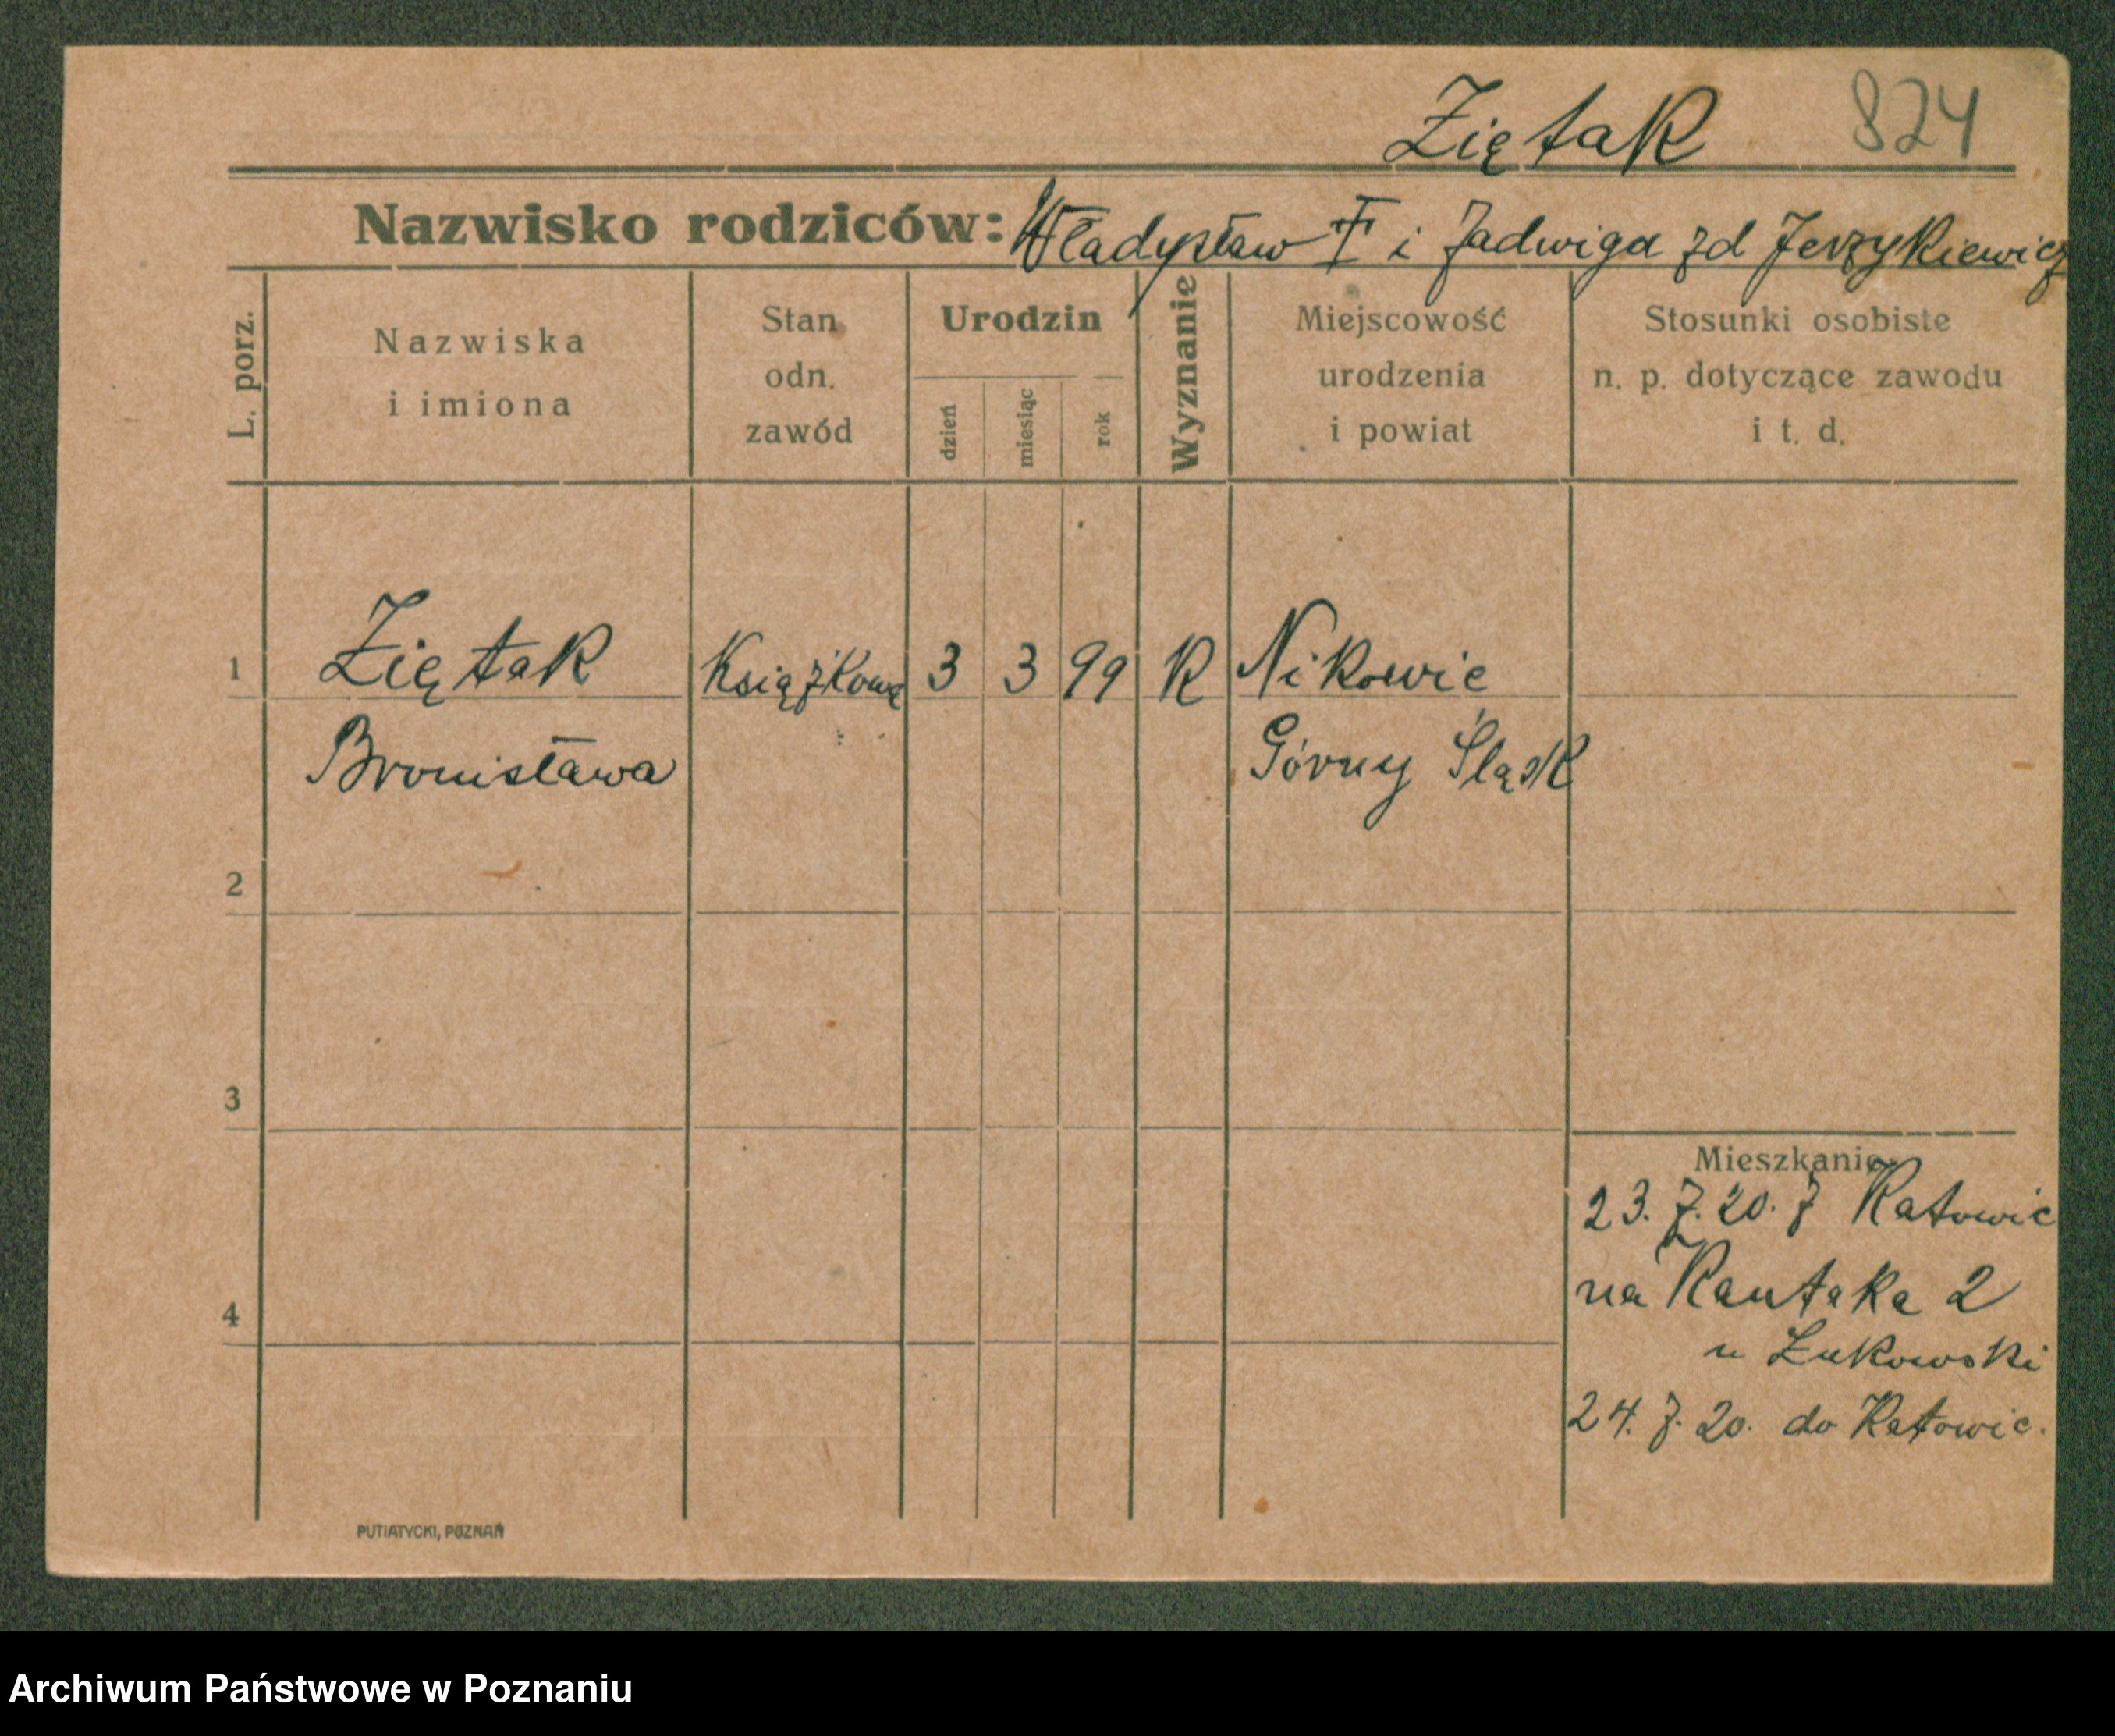 Ziętak 824
Nazwisko rodziców: Władysław Z i Jadwiga zd Jerzykiewicz
L. porz.
Nazwiska
i imiona
Stan
odn.
zawód
Urodzin
dzień
miesiąc
rok
Wyznanie
Miejscowość
urodzenia
i powiat
Stosunki osobiste
n. p. dotyczące zawodu
i t. d.
1 Ziętak Książkowa 3 3 99 K Nikowic
Bronisława Górny Śląsk
2
3
Mieszkanie
23. 7. 20. z Katowic
na Rautaka 2
u Łukowski
4
24. 7. 20. do Katowic.
PUTIATYCKI, POZNAŃ
Archiwum Państwowe w Poznaniu